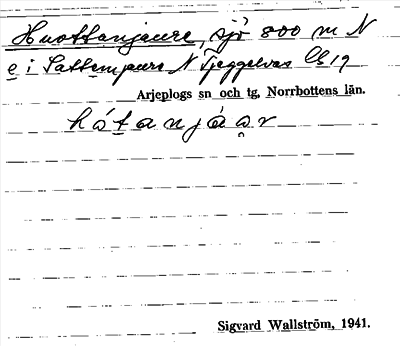 Huottanjaure, sjö 800 m N
e i Sattemjaure N Tjeggelvas Gb 19
Arjeplogs sn och tg, Norrbottens län.
hǻtanjáạr
Sigvard Wallström, 1941.